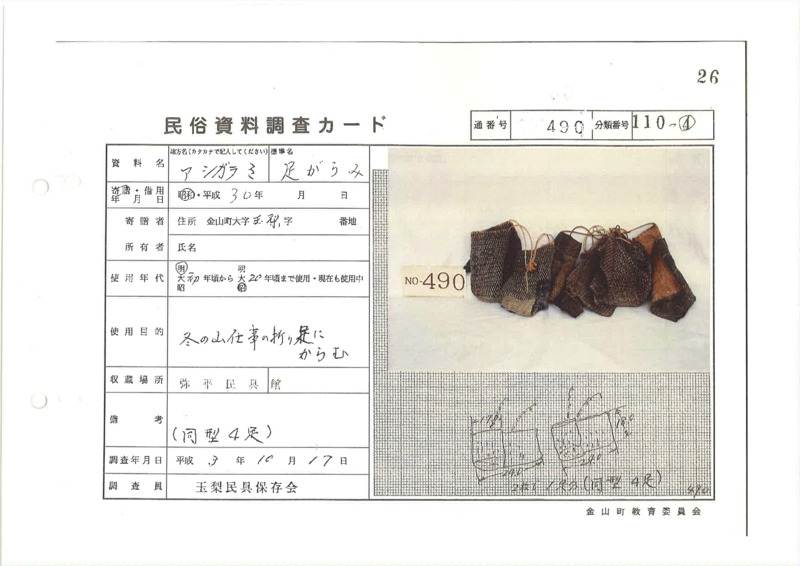 26
民俗資料調査カード
通番号 490 分類番号 110-④
資料名 地方名(カタカナで記入してください) 標準名
アシガラミ 足がらみ
寄贈・借用年月日 昭和・平成 30年 月 日
寄贈者 住所 金山町大字玉梨字 番地
所有者 氏名
使用年代 明大昭 初年頃から 明大昭 20年頃まで使用・現在も使用中
使用目的 冬の山仕事の折り足に
からむ
収蔵場所 弥平民具館
備考 (同型4足)
調査年月日 平成 3年 10月 17日
調査員 玉梨民具保存会
NO-490
29.0
29.0
2枚で1足分(同型4足)
490
金山町教育委員会